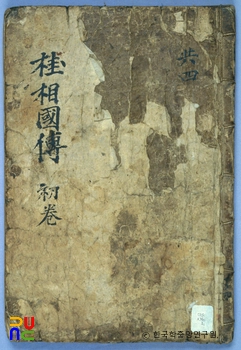 共四
桂相國傳 初卷
한국학중앙연구원